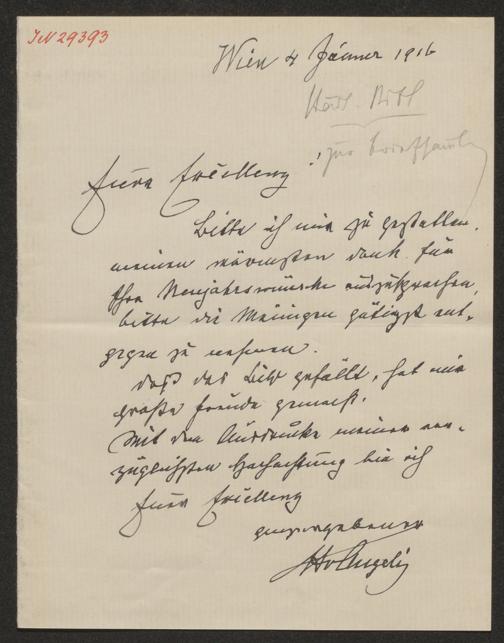 IN 29393
Wien 4 Jänner 1916
Städt. Bibl
zur Briefsamml
Eure Excellenz!
Bitte ich mir zu gestatten,
meinen wärmsten Dank für
Ihre Neujahrswünsche auszusprechen,
bitte die Meinigen gütigst ent-
gegen zu nehmen.
Daß das Bild gefällt, hat mir
große Freude gemacht.
Mit dem Ausdrucke meiner vor-
züglichsten Hochachtung bin ich
Eurer Excellenz
ganz ergebener
HvAngeli